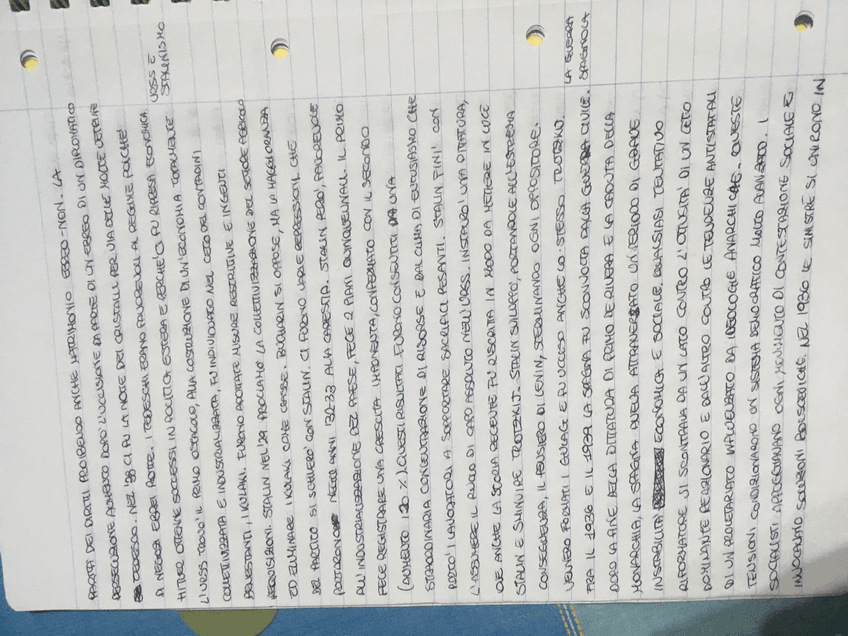 PARITÀ DEI DIRITTI PROIBENDO ANCHE MATRIMONIO EBREO-NON. LA
PERSECUZIONE AUMENTÒ DOPO L'UCCISIONE DA PARTE DI UN EBREO DI UN DIPLOMATICO
TEDESCO. NEL '38 CI FU LA NOTTE DEI CRISTALLI PER VIA DELLE MOLTE VETRINE
DI NEGOZI EBREI ROTTE. I TEDESCHI ERANO FAVOREVOLI AL REGIME POICHÉ
HITLER OTTENNE SUCCESSI IN POLITICA ESTERA E PERCHÉ CI FU RIPRESA ECONOMICA
URSS E
STALINISMO
L'URSS TROVÒ IL PRIMO OSTACOLO, ALLA COSTRUZIONE DI UN'ECONOMIA TOTALMENTE
COLLETTIVIZZATA E INDUSTRIALIZZATA, FU INDIVIDUATO NEL CETO DEI CONTADINI
BENESTANTI, I KULAKI. FURONO ADOTTATE MISURE RESTRITTIVE E INGENTI
REQUISIZIONI. STALIN NEL '29 PROCLAMÒ LA COLLETTIVIZZAZIONE DEL SETTORE AGRICOLO
ED ELIMINARE I KULAKI COME CLASSE. BUCHARIN SI OPPOSE, MA LA MAGGIORANZA
DEL PARTITO SI SCHIERÒ CON STALIN. CI FURONO VARIE REPRESSIONI CHE
PORTARONO NEGLI ANNI '32-33 ALLA CARESTIA. STALIN PERÒ, FAVOREVOLE
ALL'INDUSTRIALIZZAZIONE DEL PAESE, FECE 2 PIANI QUINQUENNALI. IL PRIMO
FECE REGISTRARE UNA CRESCITA IMPONENTE, CONFERMATO CON IL SECONDO
(AUMENTO 120 %). QUESTI RISULTATI FURONO CONSENTITI DA UNA
STRAORDINARIA CONCENTRAZIONE DI RISORSE E DAL CLIMA DI ENTUSIASMO CHE
PORTÒ I LAVORATORI A SOPPORTARE SACRIFICI PESANTI. STALIN FINÌ CON
L'ASSUMERE IL RUOLO DI CAPO ASSOLUTO NELL'URSS. INSTAURÒ UNA DITTATURA,
OVE ANCHE LA STORIA RECENTE FU RISCRITTA IN MODO DA METTERE IN LUCE
STALIN E SMINUIRE TROTZKIJ. STALIN SVILUPPÒ, PORTANDOLE ALL'ESTREMA
CONSEGUENZA, IL PENSIERO DI LENIN, STERMINANDO OGNI OPPOSITORE.
VENNERO FORMATI I GULAGE E FU UCCISO ANCHE LO STESSO TROTZKIJ.
LA GUERRA
SPAGNOLA
FRA IL 1936 E IL 1939 LA SPAGNA FU SCONVOLTA DALLA GUERRA CIVILE.
DOPO LA FINE DELLA DITTATURA DI PRIMO DE RIVERA E LA CADUTA DELLA
MONARCHIA, LA SPAGNA AVEVA ATTRAVERSATO UN PERIODO DI GRAVE
INSTABILITÀ ECONOMICA E SOCIALE. QUALSIASI TENTATIVO
RIFORMATORE SI SCONTRAVA DA UN LATO CONTRO L'OTTUSITÀ DI UN CETO
DOMINANTE REAZIONARIO E DALL'ALTRO CONTRO LE TENDENZE ANTISTATALI
DI UN PROLETARIATO INFLUENZATO DA IDEOLOGIE ANARCHICHE. QUESTE
TENSIONI CONDIZIONARONO UN SISTEMA DEMOCRATICO MOLTO AVANZATO. I
SOCIALISTI APPOGGIAVANO OGNI MOVIMENTO DI CONTESTAZIONE SOCIALE E
INVOCAVANO SOLUZIONI BOLSCEVICHE. NEL 1936 LE SINISTRE SI UNIRONO IN